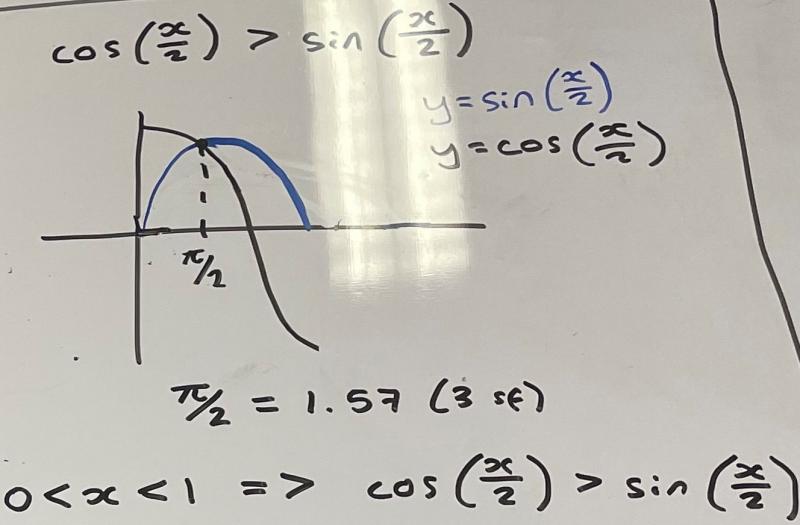 cos(x/2) > sin(x/2)
y = sin(x/2)
y = cos(x/2)
π/2
π/2 = 1.57 (3 sf)
0 < x < 1 => cos(x/2) > sin(x/2)